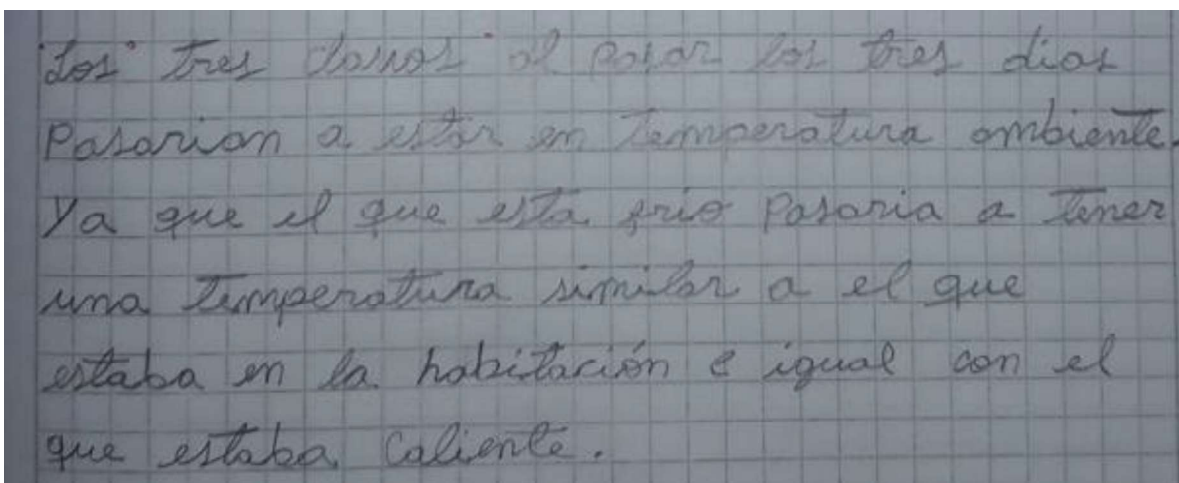 Los tres clavos al pasar los tres dias
Pasarian a estar en temperatura ambiente.
Ya que el que esta frio Pasaria a tener
una temperatura similar a el que
estaba en la habitación e igual con el
que estaba Caliente.